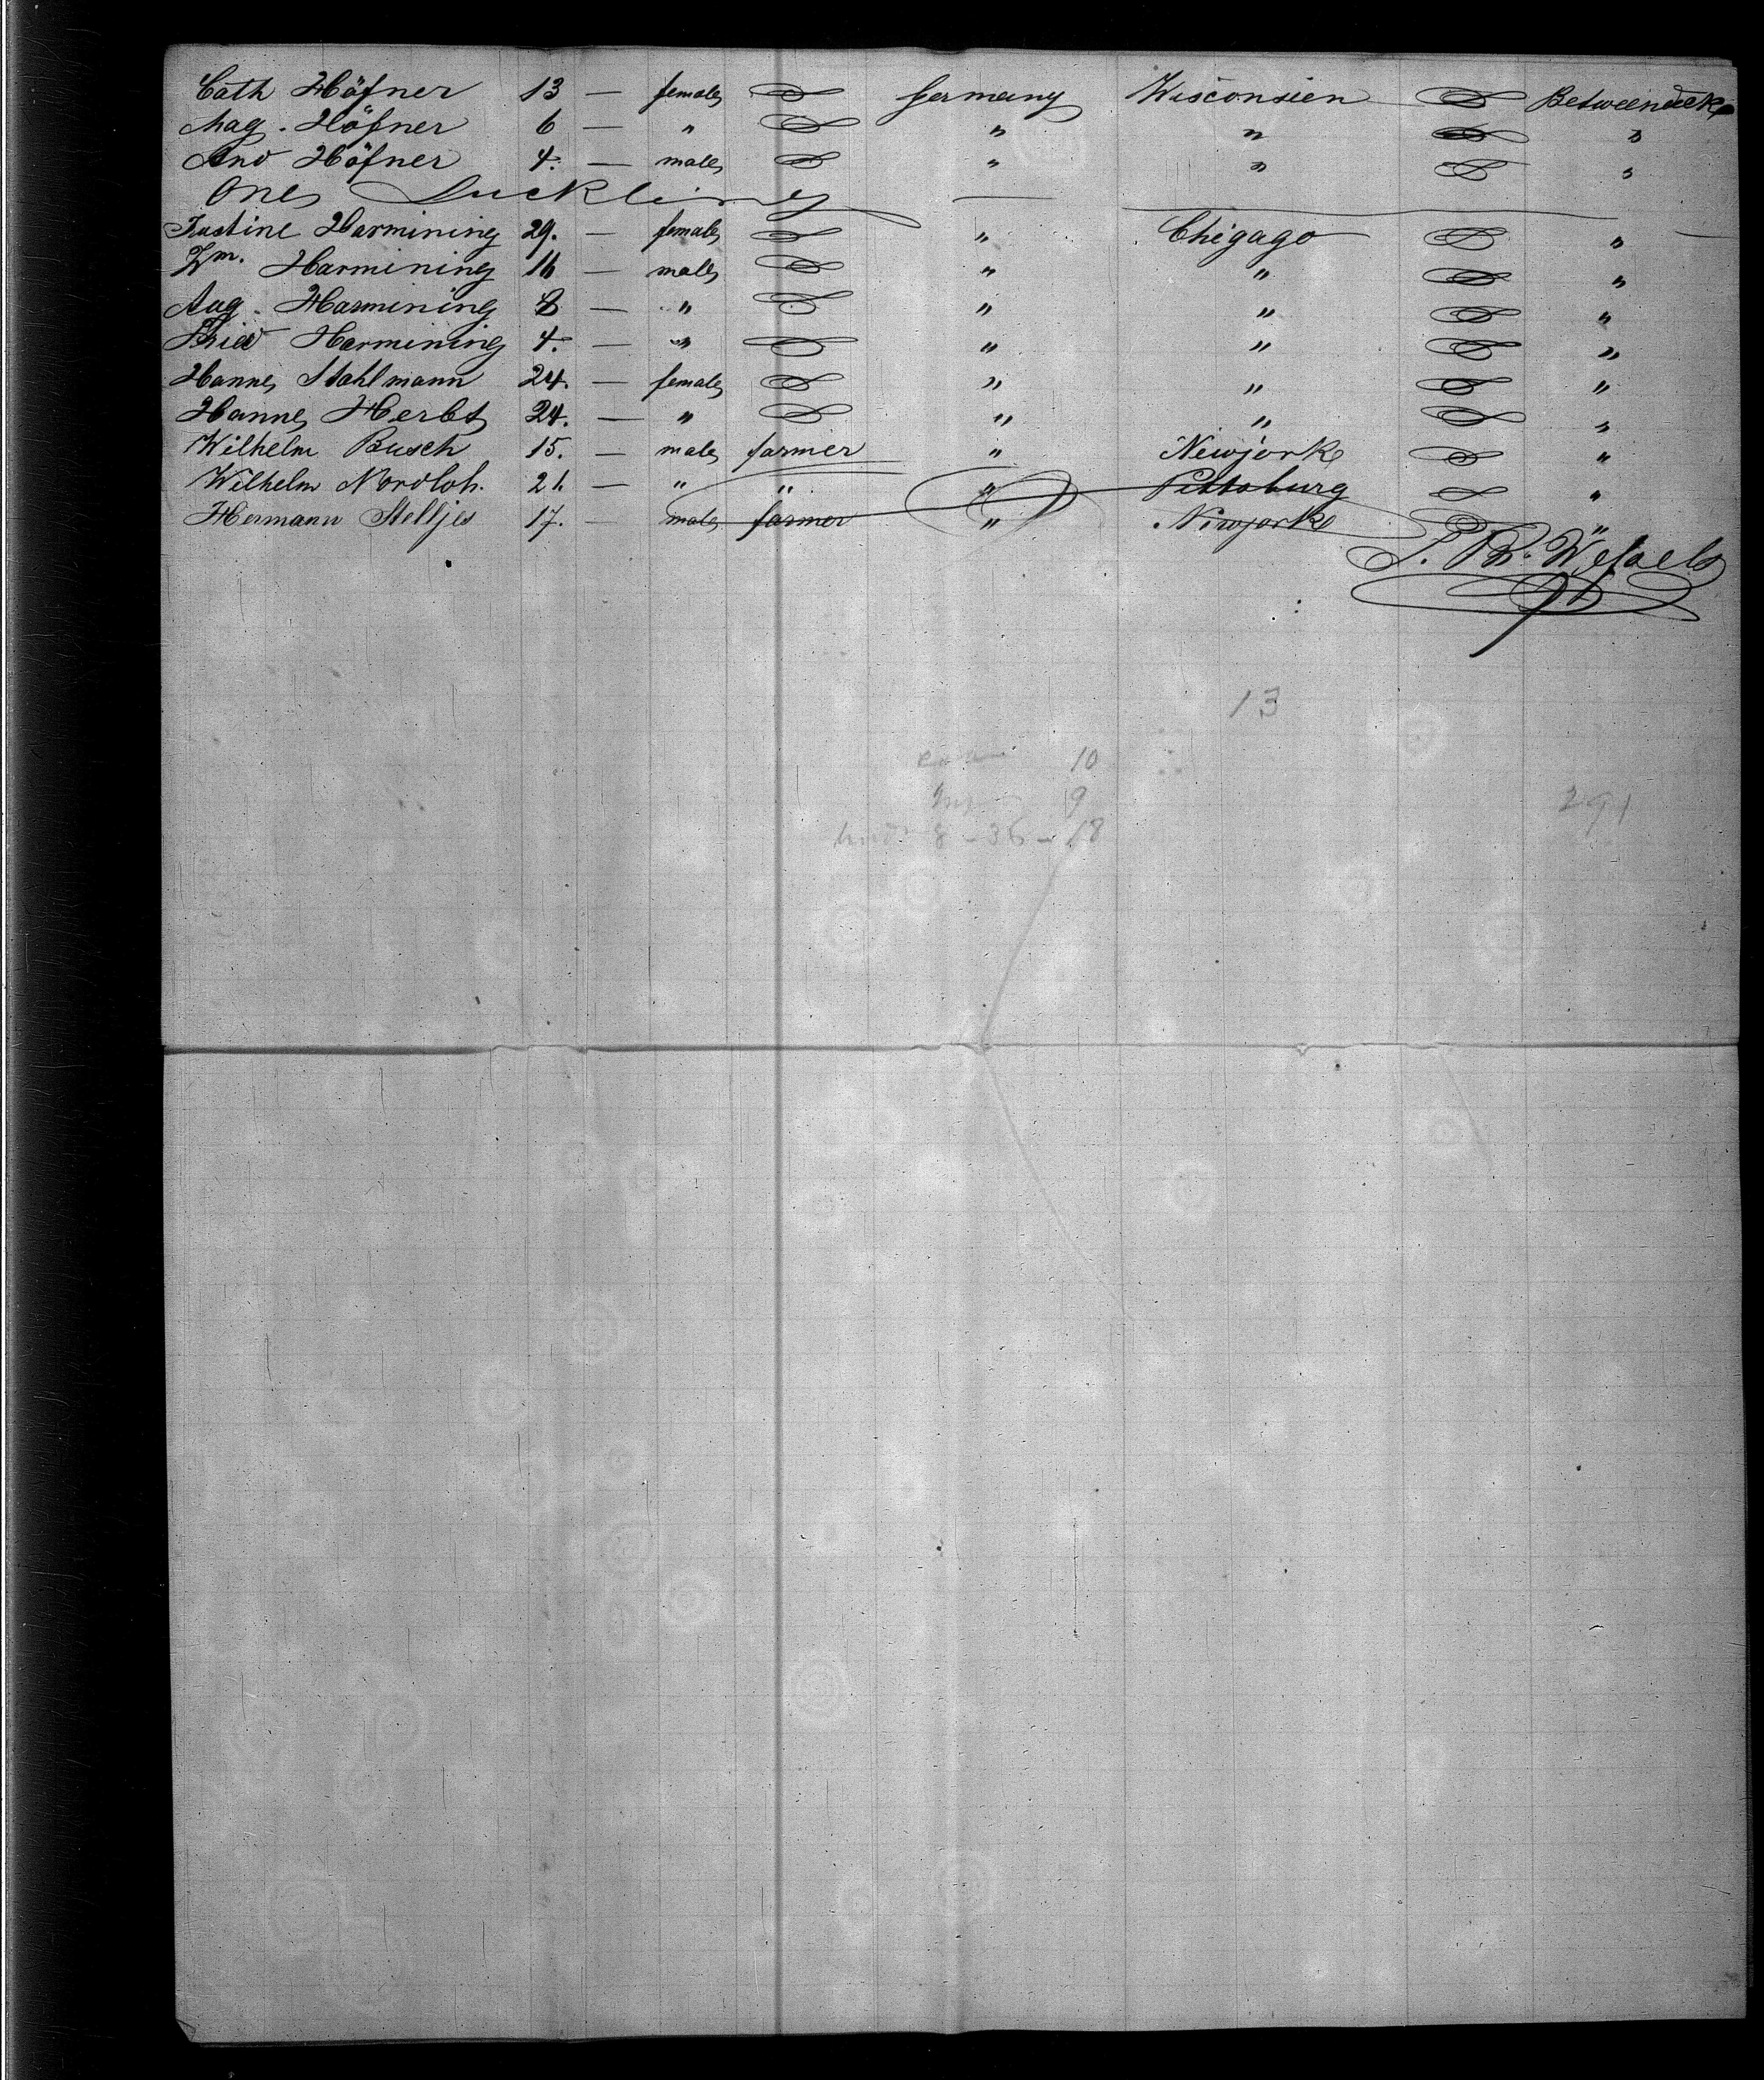 Cath Höfner 13 — female Germany Wisconsien Betweendeck
Mag. Höfner 6 — " " " "
And Höfner 4. — male " " "
One Suckling
Justine Harmining 29. — female " Chigago "
Wm. Harmining 16 — male " " "
Aug. Harmining 8 — " " " "
Fried Harmining 4. — " " " "
Hanne Stahlmann 24. — female " " "
Hanne Herbst 24. — " " " "
Wilhelm Busch 15. — male farmer " Newjork "
Wilhelm Nordloh. 21. — " " " Pittsburg "
Hermann Stelljes 17. — male farmer " Newjork "
Wessels
13
10
9
8 - 36 - 18
291